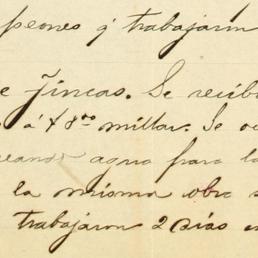 peones q' trabajaron
e fincas. Se recib
á $ 8.00 millar. Se oc
eando agua para la
la misma obra s
trabajaron 2 dias e